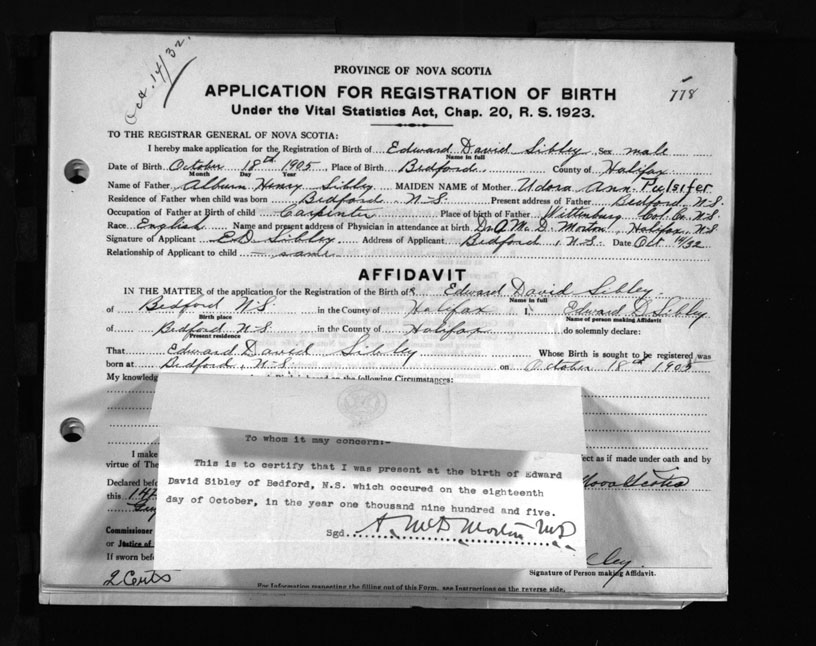 Oct. 14/32.
PROVINCE OF NOVA SCOTIA
APPLICATION FOR REGISTRATION OF BIRTH
Under the Vital Statistics Act, Chap. 20, R. S. 1923.
778
TO THE REGISTRAR GENERAL OF NOVA SCOTIA:
I hereby make application for the Registration of Birth of Edward David Sibley Sex male
Name in full
Date of Birth October 18th 1905 Place of Birth Bedford. County of Halifax
Month Day Year
Name of Father Alburn Henry Sibley MAIDEN NAME of Mother Udora Ann Pulsifer
Residence of Father when child was born Bedford N.S. Present address of Father Bedford, N.S.
Occupation of Father at Birth of child Carpenter Place of birth of Father Wittenburg Col. Co. N.S.
Race English Name and present address of Physician in attendance at birth Dr. A. Mc. D. Morton, Halifax, N.S
Signature of Applicant E D. Sibley Address of Applicant Bedford, N.S. Date Oct 14/32
Relationship of Applicant to child same
AFFIDAVIT
IN THE MATTER of the application for the Registration of the Birth of Edward David Sibley.
Name in full
of Bedford N.S in the County of Halifax I, Edward D. Sibley
Birth place Name of person making Affidavit
of Bedford N.S in the County of Halifax do solemnly declare:
Present residence
That Edward David Sibley Whose Birth is sought to be registered was
born at Bedford, N.S on October 18th 1905
My knowledg the following Circumstances:
To whom it may concern:-
This is to certify that I was present at the birth of Edward
David Sibley of Bedford, N.S. which occured on the eighteenth
day of October, in the year one thousand nine hundred and five.
Sgd. A McD Morton MD
I make fect as if made under oath and by
virtue of The
Declared befo Nova Scotia
this 14th
Commissioner
or Justice of
If sworn befo ley.
Signature of Person making Affidavit.
2 Certs
For Information respecting the filling out of this Form, see Instructions on the reverse side.